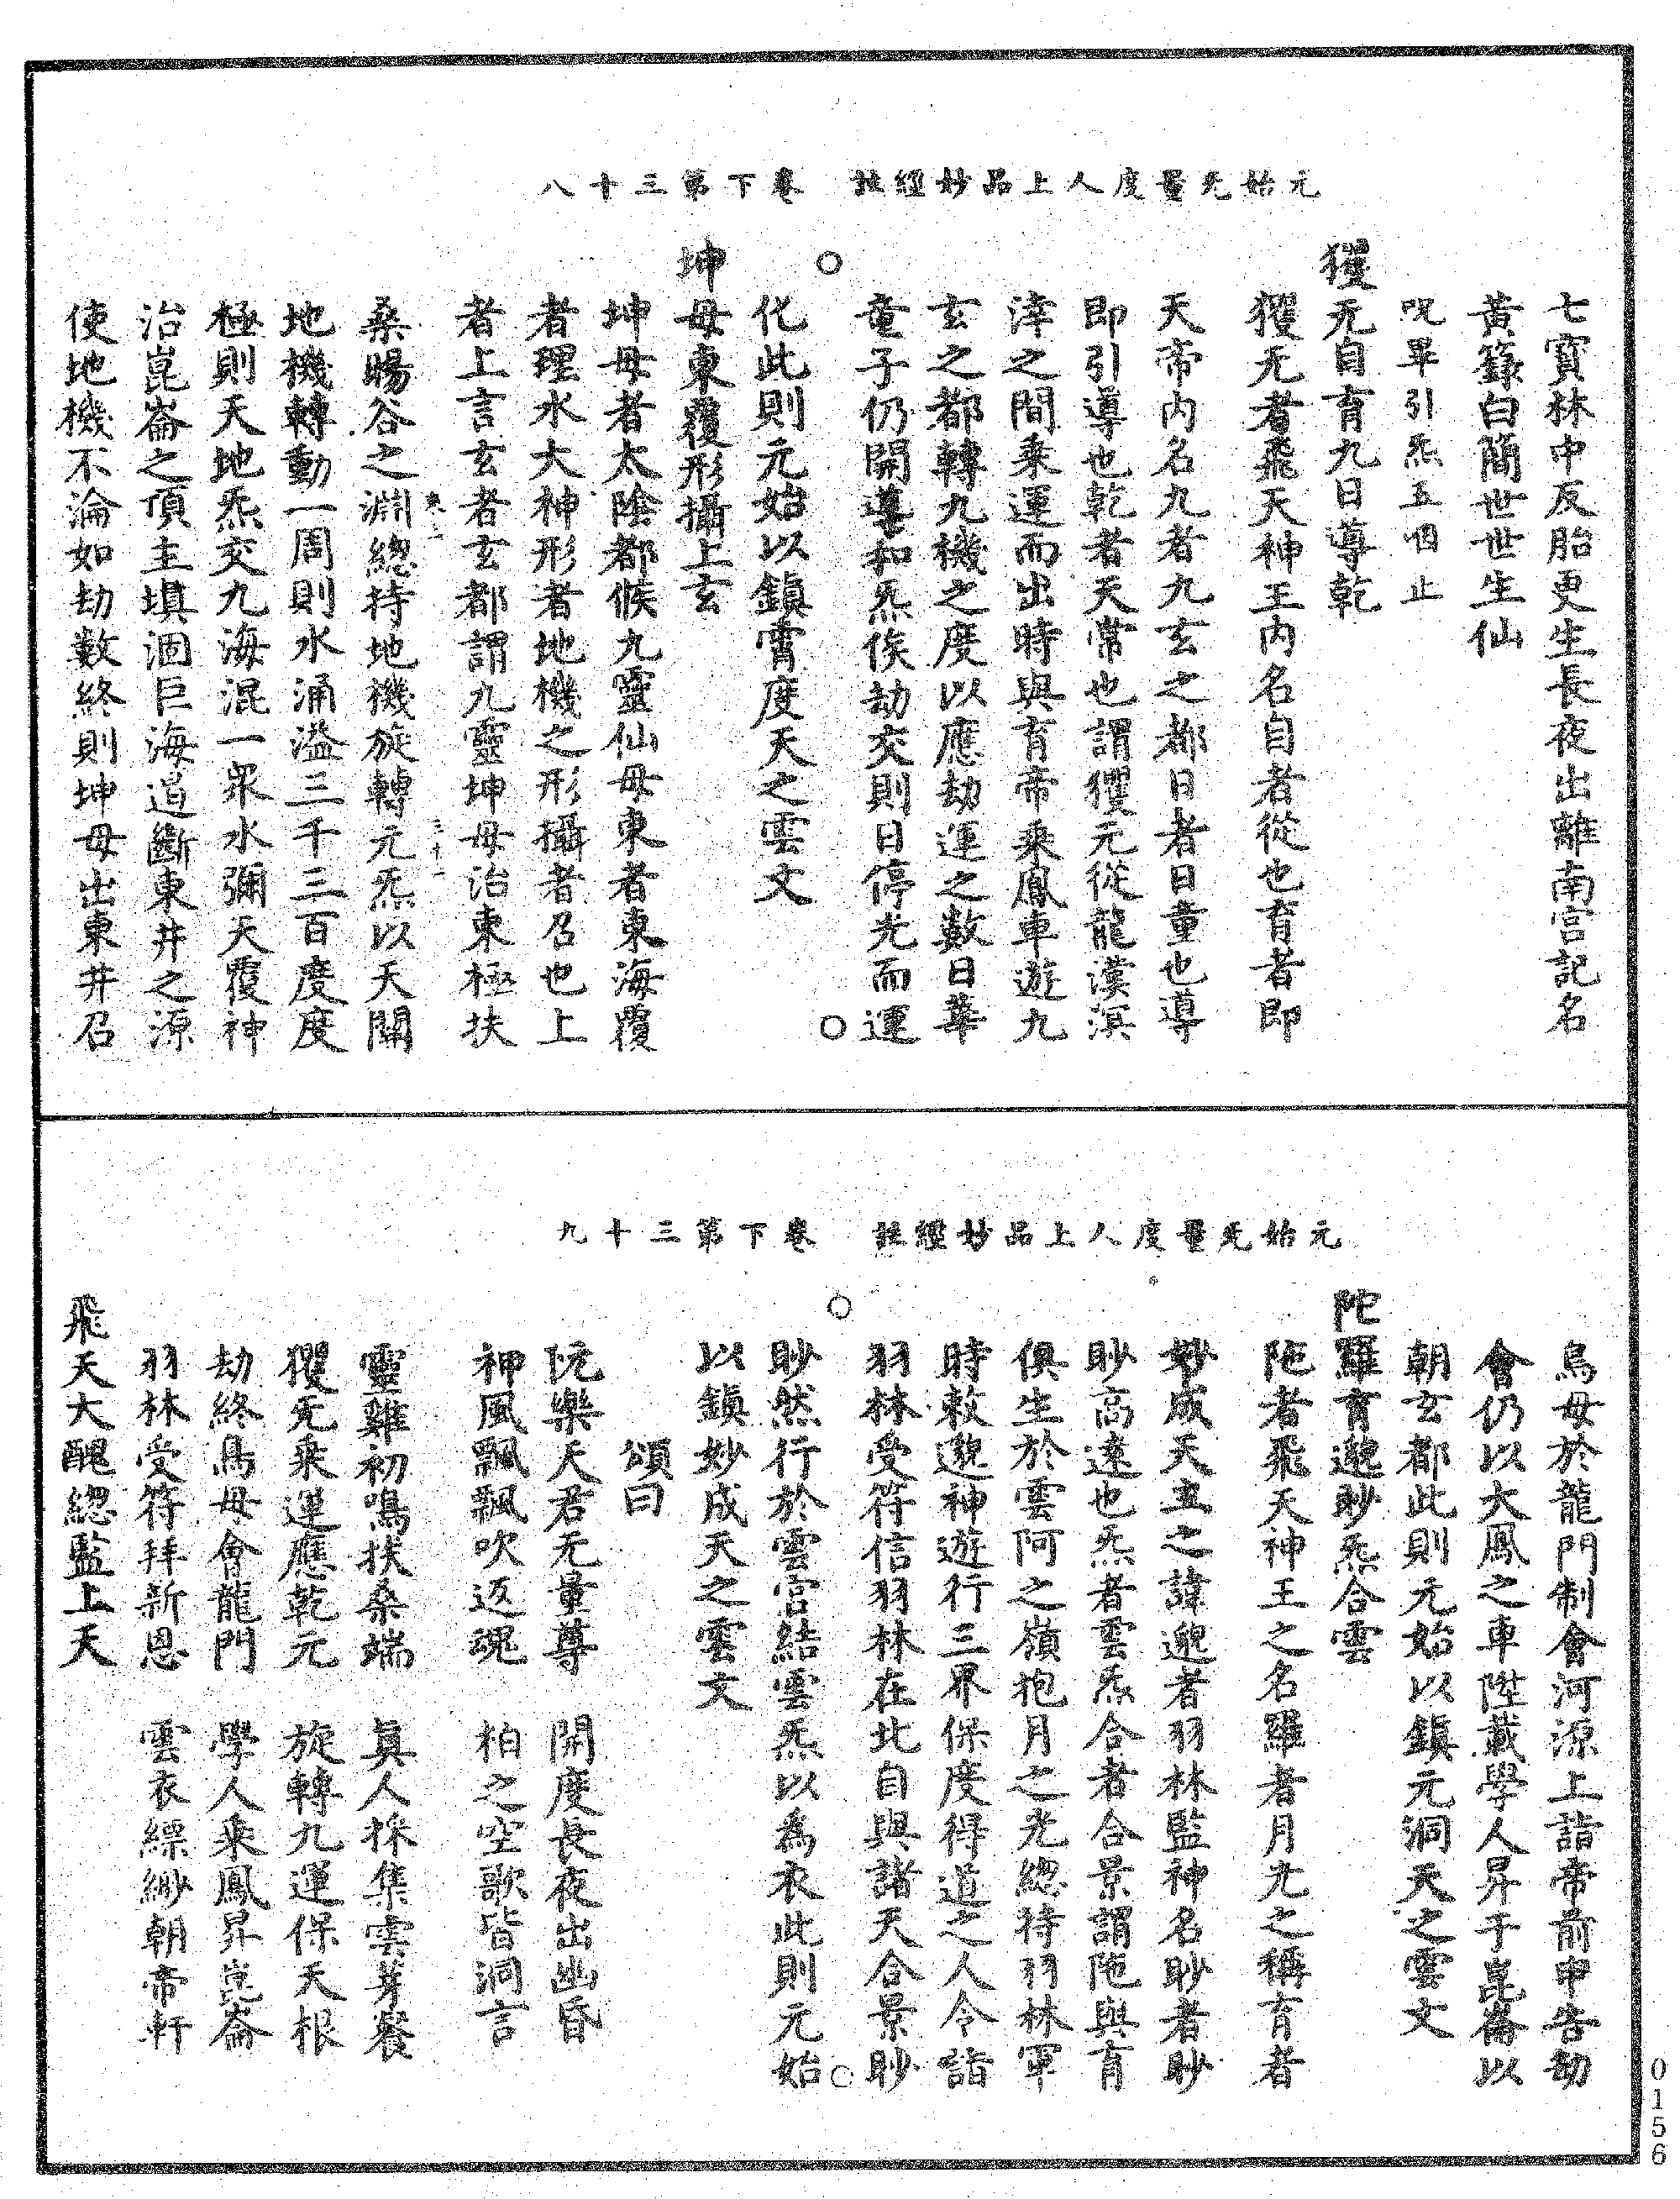 元始无量度人上品妙經註　卷下第三十八
七寶林中反胎更生長夜出離南宮記名
黃籙白簡世世生仙
呪畢引炁五個止
玃无自育九日導乾
玃无者飛天神王內名自者從也育者即
天帝內名九者九玄之都日者日童也導
即引導也乾者天常也謂玃元從龍漢溟
涬之間乘運而出時與育帝乘鳳車遊九
玄之都轉九機之度以應劫運之數日華
童子仍開導和炁俟劫交則日停光而運
化此則元始以鎮霄度天之雲文
坤母東覆形攝上玄
坤母者太陰都候九靈仙母東者東海覆
者理水大神形者地機之形攝者召也上
者上言玄者玄都謂九靈坤母治東極扶
桑暘谷之淵總持地機旋轉元炁以天關
地機轉動一周則水涌溢三千三百度度
極則天地炁交九海混一眾水彌天覆神
治崑崙之頂主填涸巨海遏斷東井之源
使地機不淪如劫數終則坤母出東井召
元始无量度人上品妙經註　卷下第三十九
鳥母於龍門制會河源上詣帝前申告劫
會仍以大鳳之車陞載學人昇于崑崙以
朝玄都此則元始以鎮元洞天之雲文
陀羅育邈眇炁合雲
陁者飛天神王之名羅者月光之稱育者
妙成天主之諱邈者羽林監神名眇者眇
眇高遠也炁者雲炁合者合景謂陁與育
俱生於雲阿之嶺抱月之光總持羽林軍
時敕邈神遊行三界保度得道之人令詣
羽林受符信羽林在北自與諸天合景眇
眇然行於雲宮結雲炁以為衣此則元始
以鎮妙成天之雲文
頌曰
阮樂天君无量尊　開度長夜出幽昏
神風飄飄吹返魂　柏之空歌皆洞言
靈雞初鳴扶桑端　真人採集雲芽餐
玃无乘運應乾元　旋轉九運保天根
劫終鳥母會龍門　學人乘鳳昇崑崙
羽林受符拜新恩　雲衣縹緲朝帝軒
飛天大醜總監上天
0156